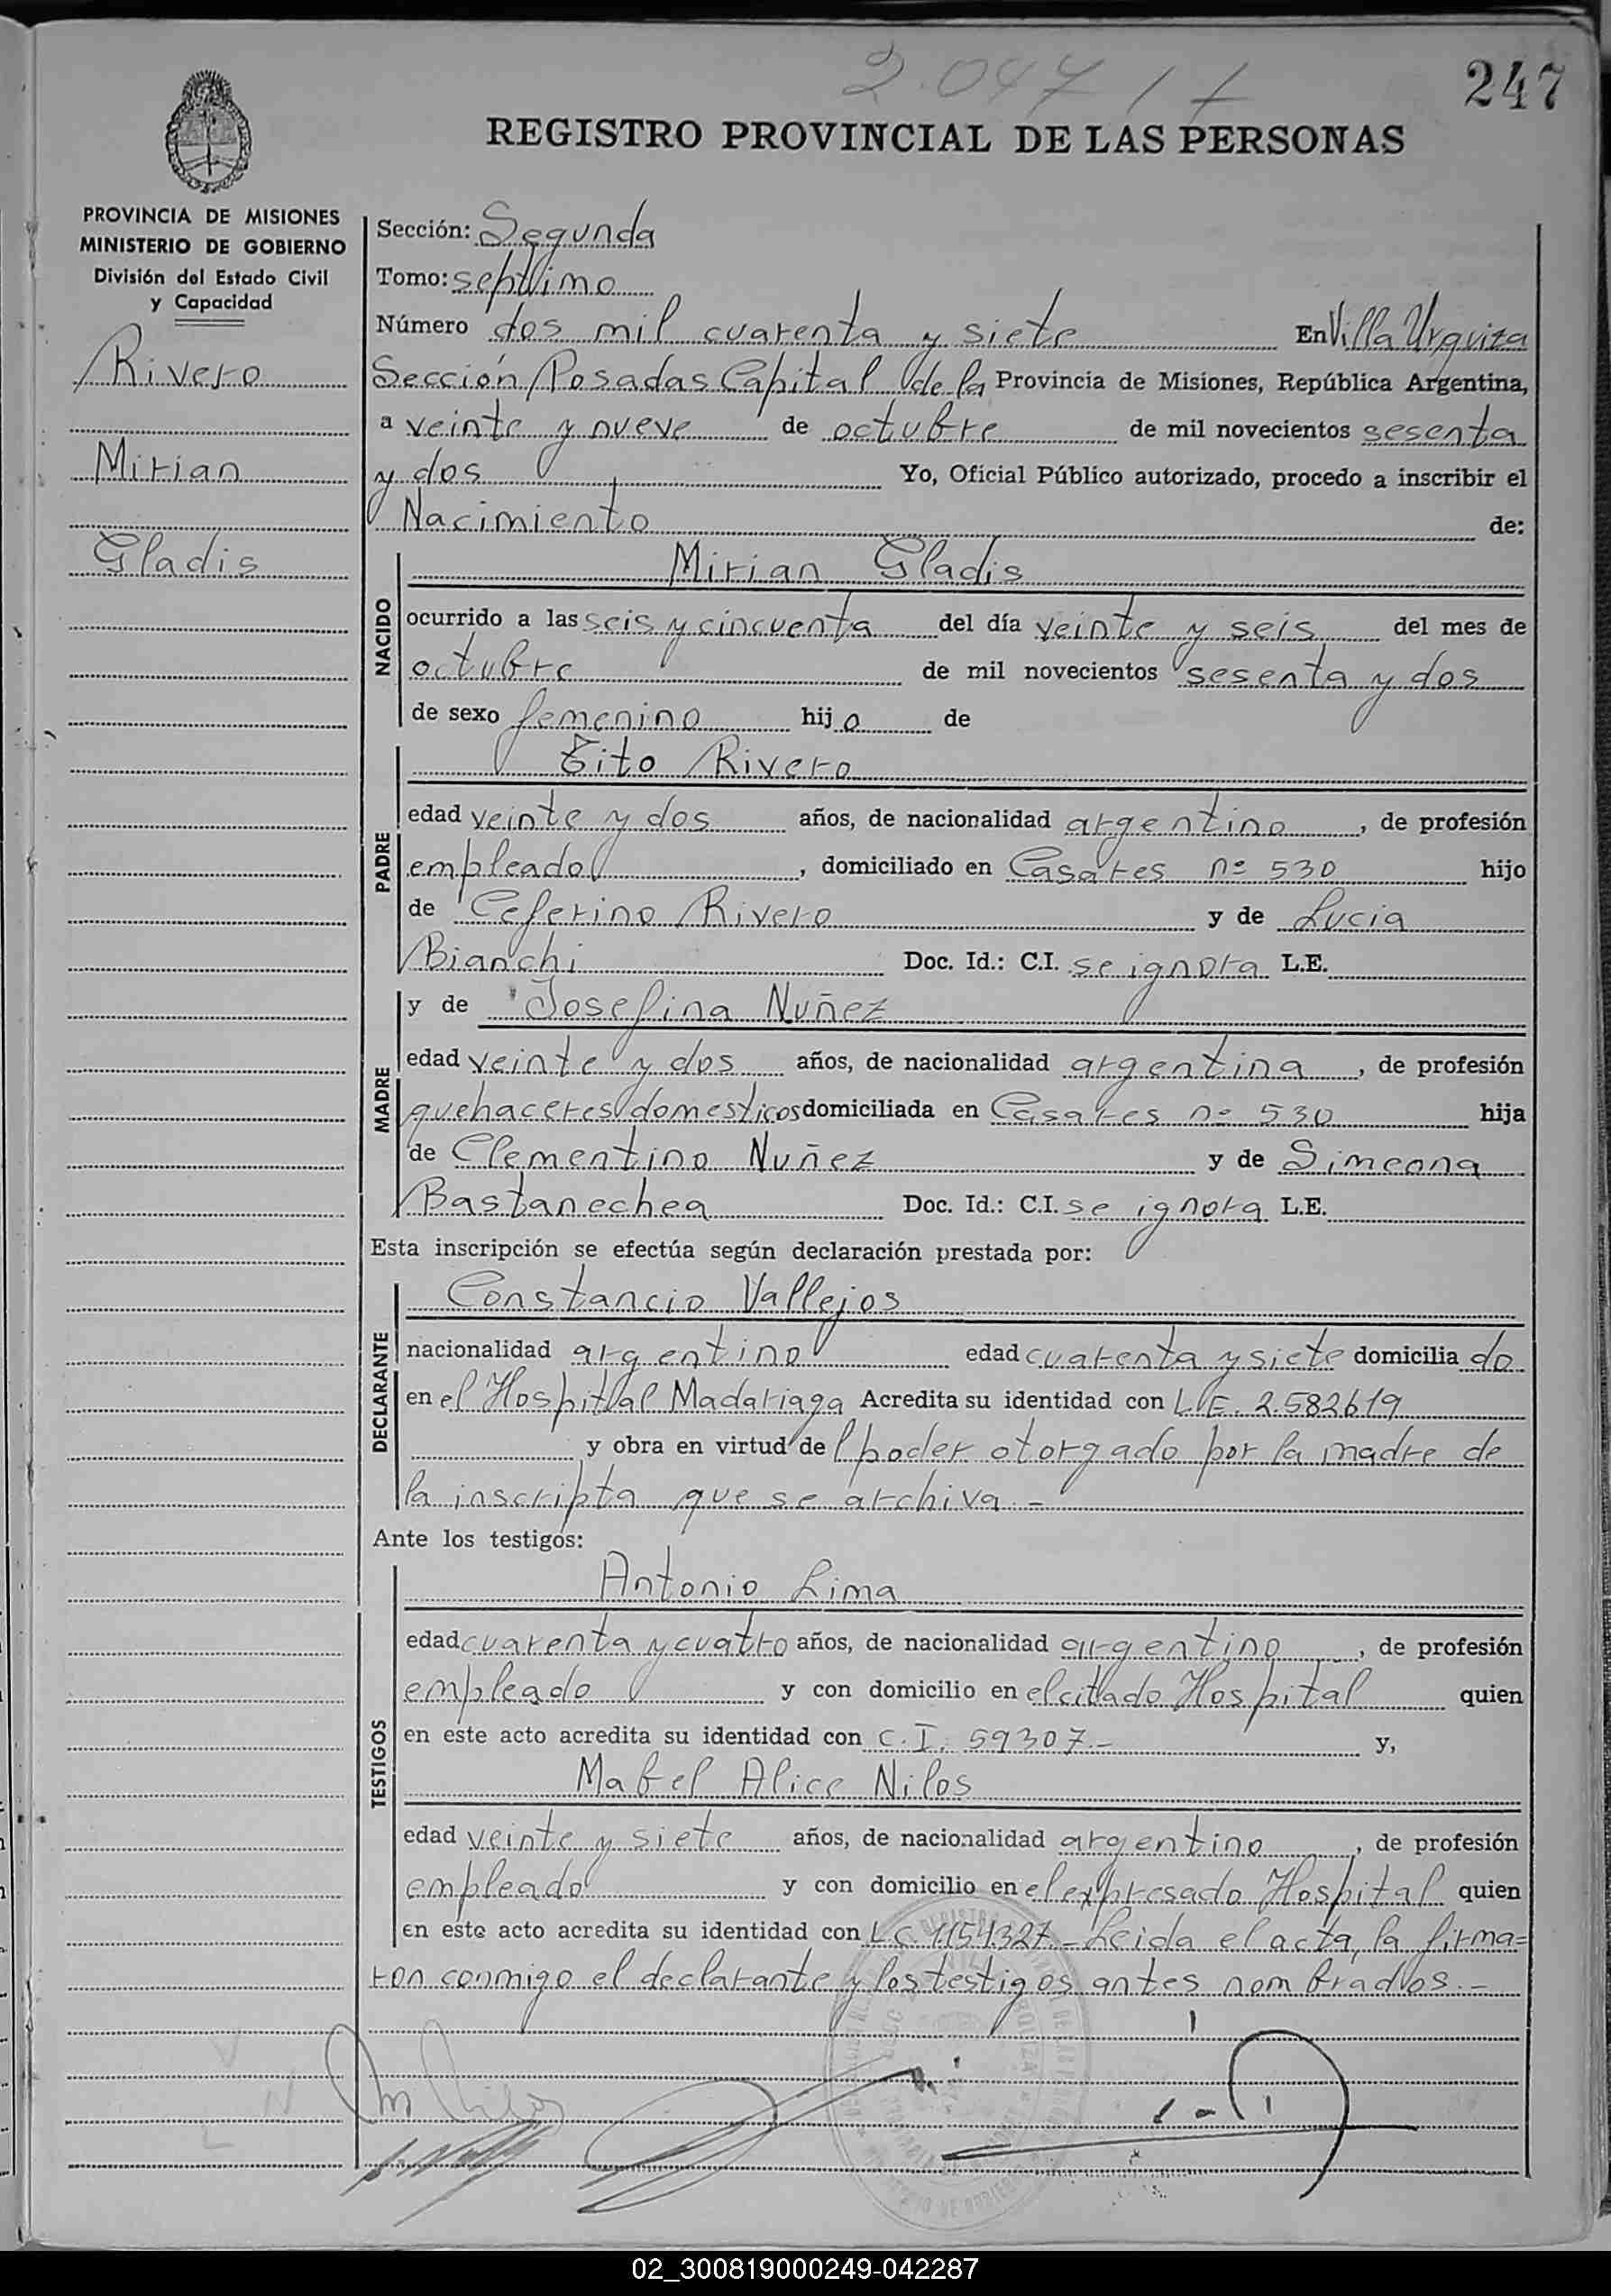 2.047 / /
247
REGISTRO PROVINCIAL DE LAS PERSONAS
PROVINCIA DE MISIONES
MINISTERIO DE GOBIERNO
División del Estado Civil
y Capacidad
Rivero
Mirian
Gladis
Sección: Segunda
Tomo: septimo
Número dos mil cuarenta y siete En Villa Urquiza
Sección Posadas Capital de la Provincia de Misiones, República Argentina,
a veinte y nueve de octubre de mil novecientos sesenta
y dos Yo, Oficial Público autorizado, procedo a inscribir el
Nacimiento de:
NACIDO
Mirian Gladis
ocurrido a las seis y cincuenta del día veinte y seis del mes de
octubre de mil novecientos sesenta y dos
de sexo femenino hij a de
PADRE
Tito Rivero
edad veinte y dos años, de nacionalidad argentino, de profesión
empleado, domiciliado en Casares nº 530 hijo
de Ceferino Rivero y de Lucia
Bianchi Doc. Id.: C.I. se ignora L.E.
MADRE
y de Josefina Nuñez
edad veinte y dos años, de nacionalidad argentina, de profesión
quehaceres domesticos domiciliada en Casares nº 530 hija
de Clementino Nuñez y de Simeona
Bastanechea Doc. Id.: C.I. se ignora L.E.
Esta inscripción se efectúa según declaración prestada por:
DECLARANTE
Constancio Vallejos
nacionalidad argentino edad cuarenta y siete domicilia do
en el Hospital Madariaga Acredita su identidad con L.E. 2.582619
y obra en virtud de l poder otorgado por la madre de
la inscripta que se archiva.-
Ante los testigos:
TESTIGOS
Antonio Lima
edad cuarenta y cuatro años, de nacionalidad argentino, de profesión
empleado y con domicilio en el citado Hospital quien
en este acto acredita su identidad con C.I. 59307.- y,
Mabel Alice Nilos
edad veinte y siete años, de nacionalidad argentino, de profesión
empleado y con domicilio en el expresado Hospital quien
en este acto acredita su identidad con L.C. 1154327.- Leida el acta, la firma=
ron conmigo el declarante y los testigos antes nombrados.-
02_300819000249-042287